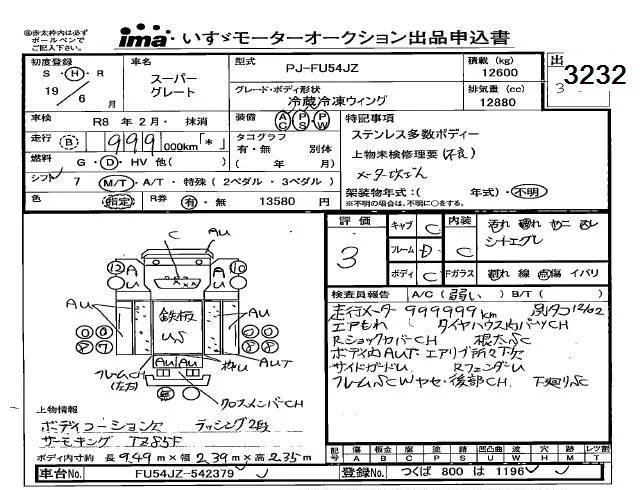 ㊟赤太枠内は必ず
ボールペンで
ご記入下さい。
ima いすゞモーターオークション出品申込書
初度登録
S・H・R
19/6月
車名
スーパー
グレート
型式 PJ-FU54JZ
グレード・ボディ形状
冷蔵冷凍ウィング
積載 (kg)
12600
排気量 (cc)
12880
出
3232
車検 R8年2月・抹消
走行 B 999 000km「*」
燃料 G・D・HV 他( )
シフト 7 M/T・A/T・特殊(2ペダル・3ペダル)
色 指定 R券 有・無 13580 円
装備 AC PS PW
タコグラフ
有・無 別体
( 年 月)
特記事項
ステンレス多数ボディー
上物未検修理要(不良)
メーター改ざん
架装物年式:( 年式)・不明
※不明の場合は、不明に○をする。
評価
3
キャブ C
フレーム D
ボディ C
内装 C
Fガラス
汚れ 破れ ヤニ ヌレ
シートエグレ
割れ 線 点傷 イバリ
検査員報告 A/C(弱い) B/T( )
走行メーター 999999km 別タコ12/02
エアもれ タイヤハウス内パーツCH
RショックカバーCH 根太SC
ボディ内AUT・エアリブ所々欠
サイドガードU RフェンダーU
フレームSCWヤセ・後部CH 下廻りSC
C AU
12 AU AU 10
AU AU
鉄板
US
AU AU
08 87 08 97
フレームCH
(左右)
枠U AUT
無
クロスメンバーCH
上物情報
ボディコーション欠 ラッシング2段
サーモキング TZ85F
ボディ内寸約 長 9.49 m×幅 2.39 m×高 2.35 m
記号 傷 A 板金 B 腐 C 歪 P 錆 S 凹凸曲 U 波 W 穴 H 跡 M レツ割 T
車台No. FU54JZ-542379
登録No. つくば 800 は 1196